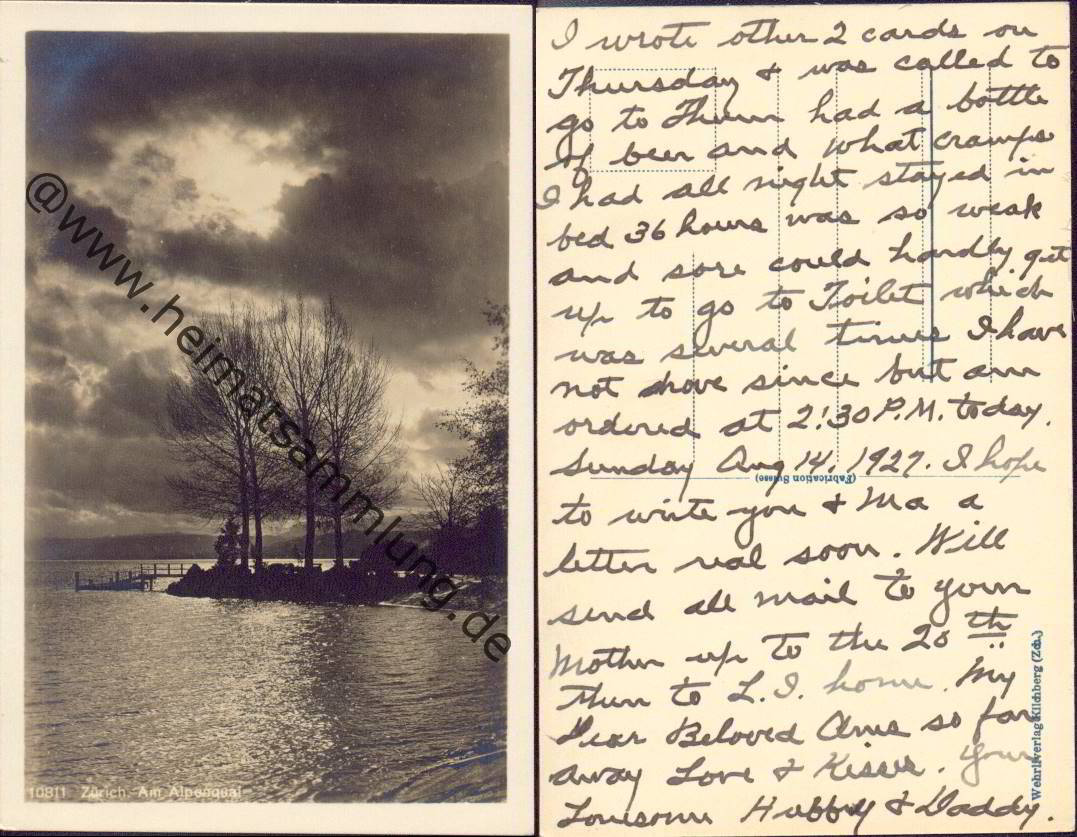 10811 Zürich. Am Alpenquai
@www.heimatsammlung.de
I wrote other 2 cards on
Thursday & was called to
go to Thun had a bottle
of beer and what cramps
I had all night stayed in
bed 36 hours was so weak
and sore could hardly get
up to go to Toilet which
was several times I have
not shove since but am
ordered at 2:30 P.M. today.
Sunday Aug 14, 1927. I hope
to write you & Ma a
letter real soon. Will
send all mail to your
Mother up to the 20th
then to L.I. home. My
Dear Beloved Ame so far
away Love & Kisses. Your
Lonesome Hubby & Daddy.
(Fabrication Suisse)
Wehrliverlag Kilchberg (Zch.)